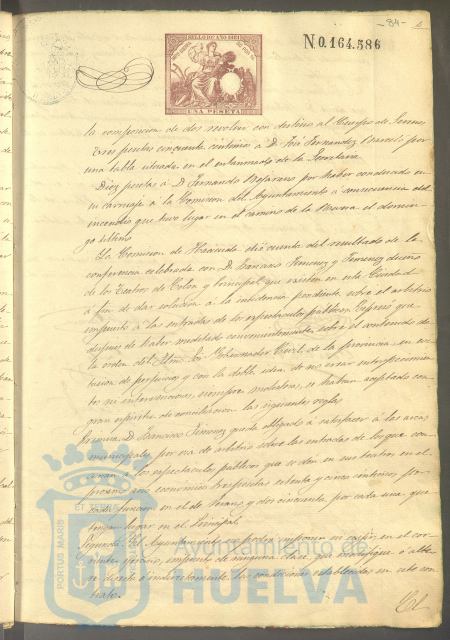 - 84 -
SELLO DE AÑO
UNA PESETA
N0.164.586
la composicion de dos con destino al Cuerpo de
Tres pesetas cincuenta centimos á D. José Fernandez por
una tabla en el de la Secretaria
Diez pesetas á D. Fernando Bejarano por haber conducido en
su carruaje á la Comision del Ayuntamiento á consecuencia del
incendio que tuvo lugar en el camino de la el domin-
go último
La Comision de Hacienda dió cuenta del resultado de la
conferencia celebrada con D. Francisco Jimenez y Jimenez dueño
de los Teatros de Colon y Principal que existen en esta Ciudad
á fin de dar solucion á la incidencia pendiente sobre el arbitrio
impuesto á las entradas de los espectáculos públicos. Expresó que
despues de haber meditado convenientemente sobre el contenido de
la orden del Iltmo. Sr. Gobernador Civil de la provincia en
de perjuicios y con la doble idea de no crear entorpecimien-
tos ni intervenciones, siempre molestas, se habian aceptado con
gran espíritu de conciliacion las siguientes reglas
Primera. D. Francisco Jimenez queda obligado á satisfacer á las arcas
municipales por via de arbitrio sobre las entradas de los que con-
curran á los espectáculos públicos que se dan en sus teatros en el
año económico tres pesetas setenta y cinco centimos por
cada funcion en el de Verano y dos cincuenta por cada una que
tengan lugar en el Principal
Segunda. El Ayuntamiento no podrá imponer en en el cor-
riente impuesto de ninguna clase que modifique ó alte-
re directa ó indirectamente las condiciones establecidas en este con-
trato.
El
PORTUS MARIS
Ayuntamiento de
HUELVA